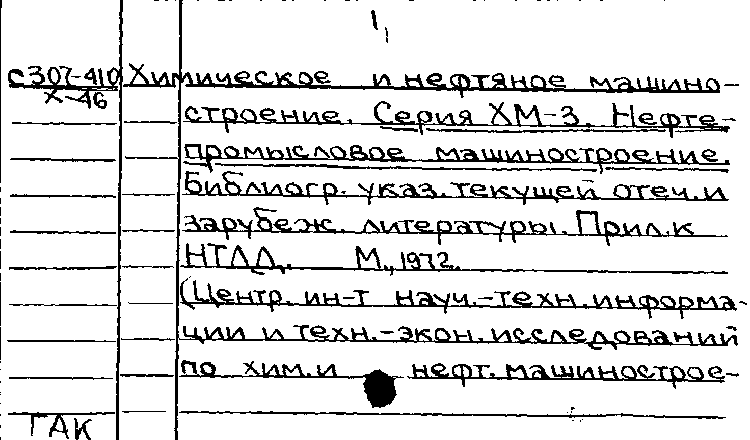 1
с307-410 Химическое и нефтяное машино-
Х-46 строение. Серия ХМ-3. Нефте-
промысловое машиностроение.
Библиогр. указ. текущей отеч. и
зарубеж. литературы. Прил. к
НТЛД. М., 1972.
(Центр. ин-т науч.-техн. информа-
ции и техн.-экон. исследований
по хим. и нефт. машинострое-
ГАК